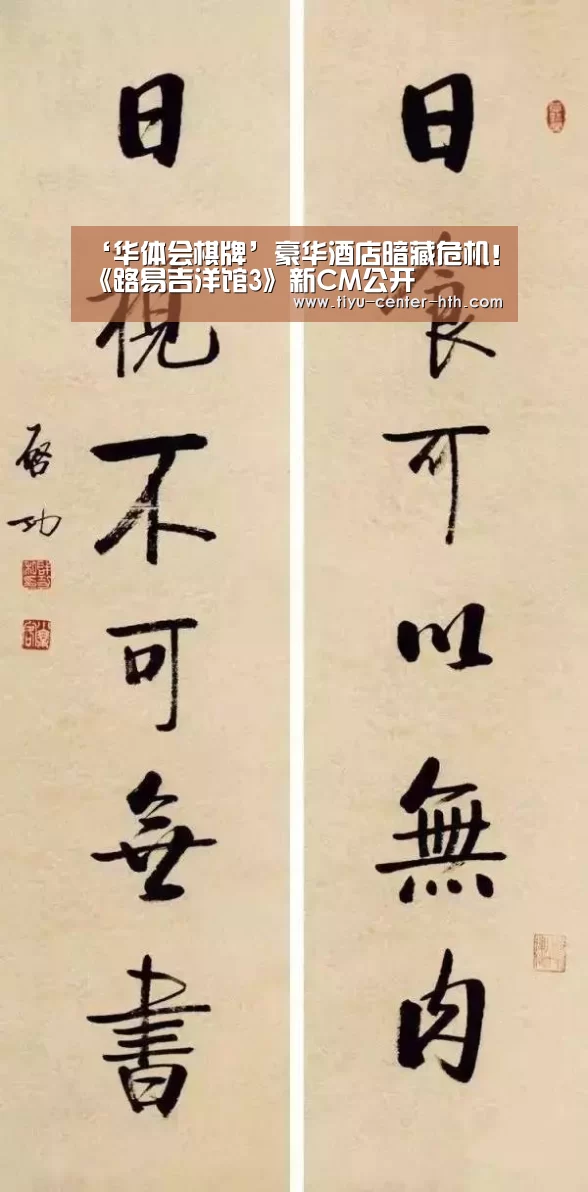 ‘华体会棋牌’豪华酒店暗藏危机!
《路易吉洋馆3》新CM公开
www.tiyu-center-hth.com
日食可以無肉
日視不可無書
启功